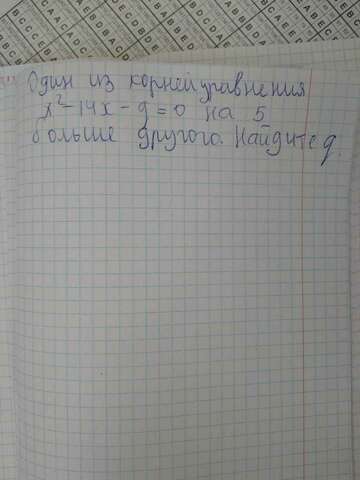 Один из корней уравнения
x²-14x-q=0 на 5
больше другого. Найдите q.